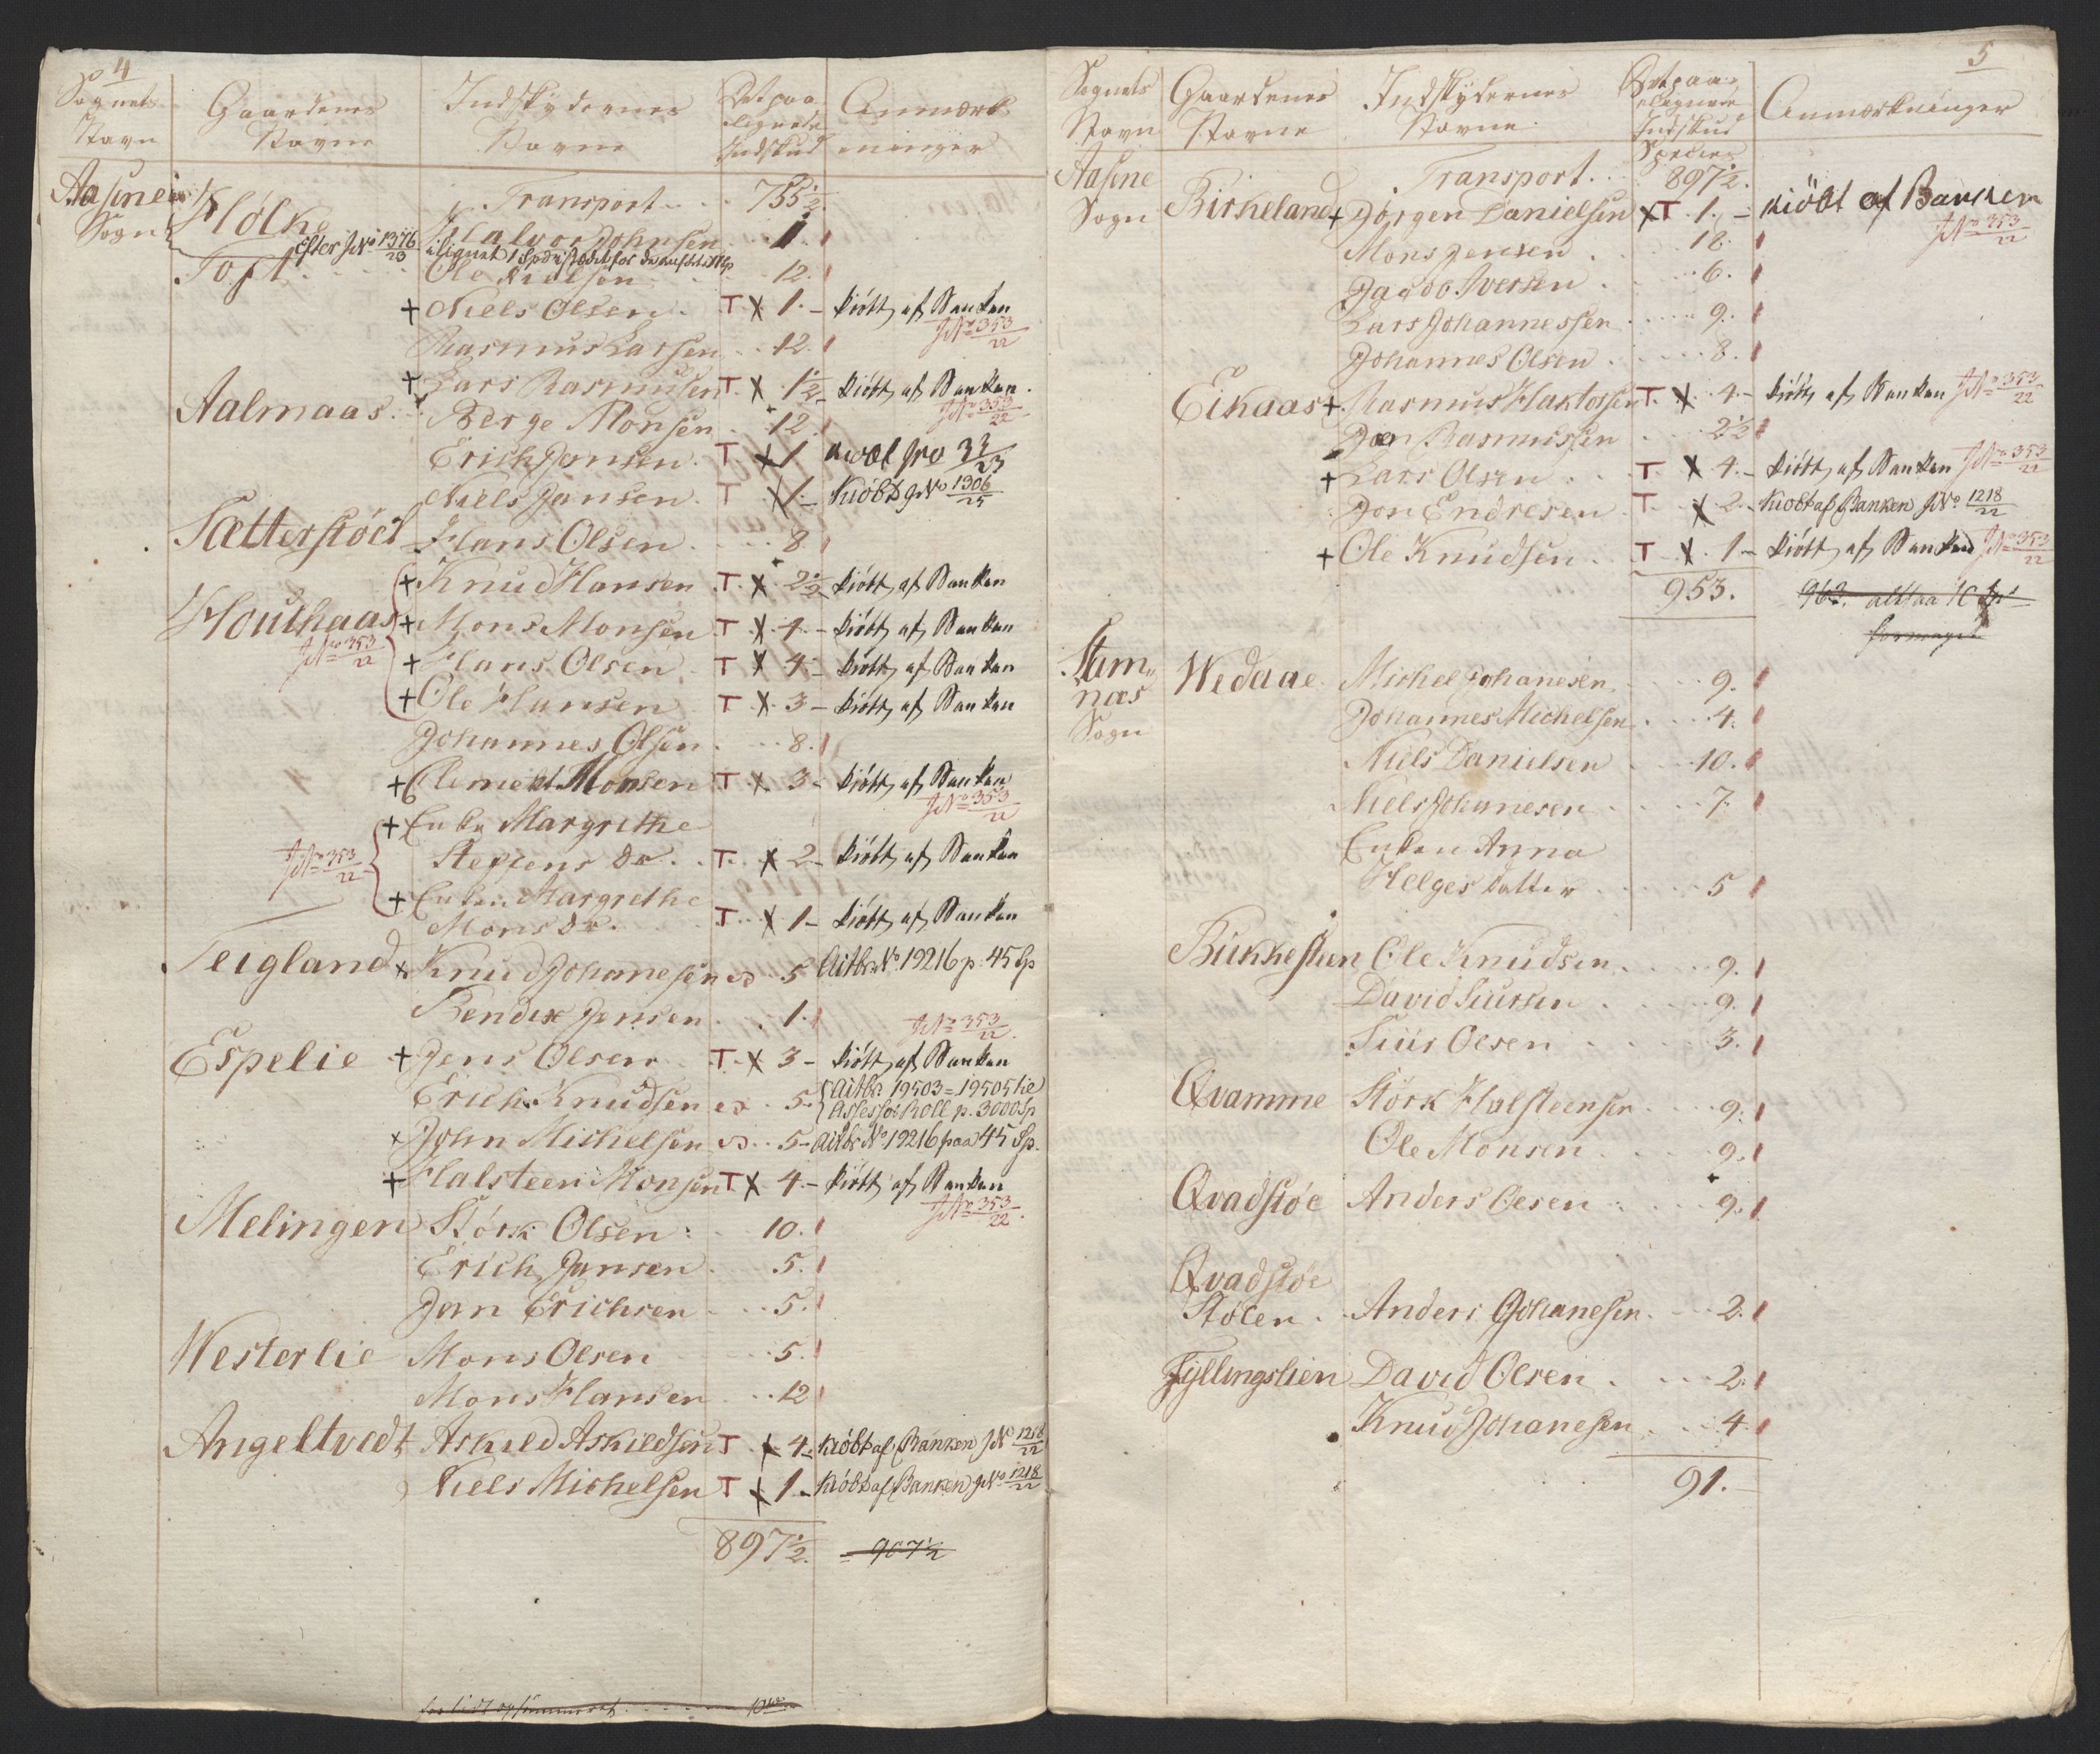 4
Sognets Navn | Gaardenes Navne | Indskydernes Navne | Det paalignede Indskud | Anmærkninger
Aasene Sogn | Transport | 755 1/2
Hølke | Halvor Johnsen | 1
efter JNo 1376/23
Toft | Ole Nielsen | 12
+ Niels Olsen | T X 1 – kiøbt af Banken
JNo 353/22
Rasmus Larsen | 12
+ Lars Rasmusen | T X 1 1/2 – kiøbt af Banken
JNo 353/22
Aalmaas | Berge Monsen | 12
Erich Jansen | T X 1
Niels Jansen | T X 1 – Kiøbt JNo 1306/25
Sætterstöel | Hans Olsen | 8
Houshaas
JNo 353/22
+ Knud Hansen | T X 2 1/2 – kiøbt af Banken
+ Mons Monsen | T X 4 – kiøbt af Banken
+ Hans Olsen | T X 4 – kiøbt af Banken
+ Ole Hansen | T X 3 – kiøbt af Banken
Johannes Olsen | 8
+ Clement Monsen | T X 3 – kiøbt af Banken
JNo 353/22
+ Enke Margrethe
Steffens Dr. | T X 2 – kiøbt af Banken
JNo 353/22
+ Enken Margrethe
Mons Dr. | T X 1 – kiøbt af Banken
Teigland | x Knud Johanesen | 5 | No 19216 p. 45 Sp
Bendix Jensen | 1
JNo 353/22
Espelie | + Jens Olsen | T X 3 – kiøbt af Banken
Erich Knudsen | 5 | 19503 = 19505 til
Assessor Koll p. 3000 Sp
x John Michelsen | 5 – No 19216 paa 45 Sp.
+ Halsteen Monsen | T X 4 – kiøbt af Banken
JNo 353/22
Melingen | Störk Olsen | 10
Erich Jansen | 5
Jan Erichsen | 5
Westerlie | Mons Olsen | 5
Mons Hansen | 12
Angeltvedt | Askild Askildsen | T X 4 – Kiøbt af Banken JNo 1218/22
Niels Michelsen | T X 1 – Kiøbt af Banken JNo 1218/22
897 1/2 = 907 1/2
5
Sognets Navn | Gaardenes Navne | Indskydernes Navne | Det paalignede Indskud | Anmærkninger
Species
Aasene Sogn | Transport | 897 1/2
Birkeland | + Jørgen Danielsen | XT 1 – kiöbt af Banken
JNo 353/22
Mons Jensen | 12
Jacob Iversen | 6
Lars Johannessen | 9
Johannes Olsen | 8
Eikaas | + Rasmus Haktorsen | T X 4 – kiøbt af Banken JNo 353/22
Jon Rasmussen | 2 1/2
+ Lars Olsen | T X 4 – kiøbt af Banken JNo 353/22
Jon Endresen | T X 2 – Kiøbt af Banken JNo 1218/22
+ Ole Knudsen | T X 1 – kiøbt af Banken JNo 353/22
953. | 963. altsaa 10 Sp
formeget
Stamnæs Sogn | Wedaae | Michel Johanesen | 9
Johannes Michelsen | 4
Niels Danielsen | 10
Niels Johanesen | 7
Enken Anna
Helges Datter | 5
Bukkesteen | Ole Knudsen | 9
David Siursen | 9
Siur Olsen | 3
Qvamme | Störk Halsteensen | 9
Ole Monsen | 9
Qvadstöe | Anders Olsen | 9
Qvadstöe
Stölen | Anders Johanesen | 2
Fyllingslien | David Olsen | 2
Knud Johanesen | 4
91.